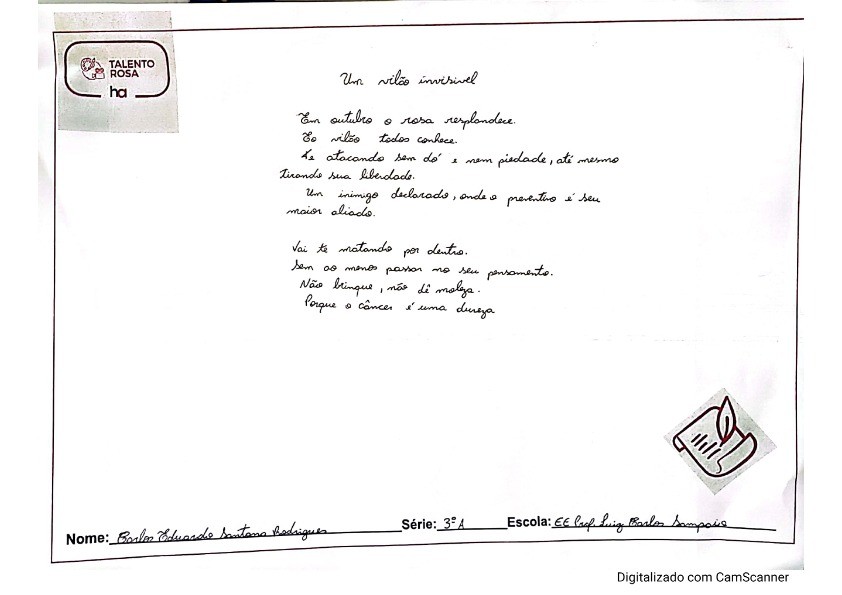 TALENTO
ROSA
ha
Um vilão invisível
Em outubro o rosa resplandece.
Eo vilão todos conhece.
Te atacando sem dó e nem piedade, até mesmo
tirando sua liberdade.
Um inimigo declarado, onde o preventivo é seu
maior aliado.
Vai te matando por dentro.
Sem ao menos passar no seu pensamento.
Não brinque, não dê moleza.
Porque o câncer é uma dureza
Nome: Carlos Eduardo Santana Rodrigues Série: 3º A Escola: EE Prof. Luiz Carlos Sampaio
Digitalizado com CamScanner